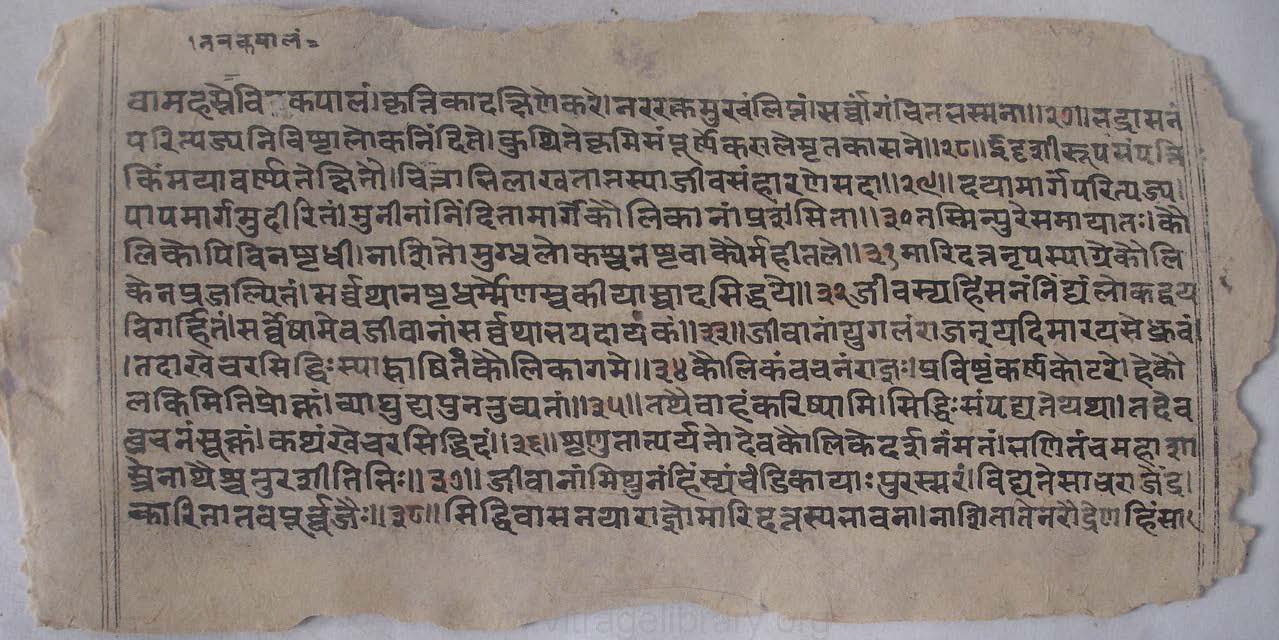 ।नवकपालं=
वामहस्ते वि कपालं। कृत्तिका दक्षिणे करे। नररक्तसुरवंलिप्तं। सर्वांगं चितभस्मना॥२७॥ भद्रासनं
परित्यज्य निविष्टा लोकनिंदिते। कुथिते कृमिसंपूर्णे कराले मृतकासने॥२८॥ ईदृशी रूपसंपत्ति
किं मया वर्ण्यते क्षितौ। चित्राभिलाखनात्तस्या जीवसंहारणे सदा॥२९॥ दयामार्गं परित्यज्य।
पापमार्गमुदीरितं। मुनीनां निंदिता मार्गे कौलिकानां प्रशंसिता॥३० तस्मिन्पुरे समायातः। कौ
लिकोपि विनष्टधी। नाशितो मुग्धलोकश्च नष्टवाक्यैर्महीतले॥३१ मारिदत्तनृपस्याग्रे कौलि
केन प्रजल्पितं। सर्वथा नष्टधर्म्मेण स्वकीयास्वादसिद्धये॥३२ जीवस्य हिंसनं निंद्यं लोकद्वय
विगर्हितं। सर्वेषामेव जीवानां सर्वथा भयदायकं॥३३॥ जीवानां युगलं राजन् यदि मारयसे ध्रुवं।
।तदा खेचरसिद्धिः स्याद्भाषितं कौलिकागमे॥३४ कौलिकं वचनं राज्ञः। प्रविष्टं कर्णकोटरे। हे कौ
लकिमिति प्रोक्तं। व्याघुट्य पुननुच्यतां॥३५॥ तथैवाहं करिष्यामि। सिद्धिः संपद्यते यथा। तदैव
वचनं सूक्तं। कथं खेचरसिद्धिदं॥३६॥ शृणु तात्पर्यतो देव कौलिकेदर्शनं मतं। भणितं च महाशा
स्त्रे नाथैश्चतुरशीतिभिः॥३७॥ जीवानां मिथुनं हिंस्यं चंडिकायाः पुरस्सरं। विद्यते सा धराजेंद्र।
कारिता तव पूर्वजैः॥३८॥ सिद्धिवासनया राज्ञो मारिदत्तस्य भावना। नाशिता तेन रौद्रेण हिंसा
vitragelibrary.org